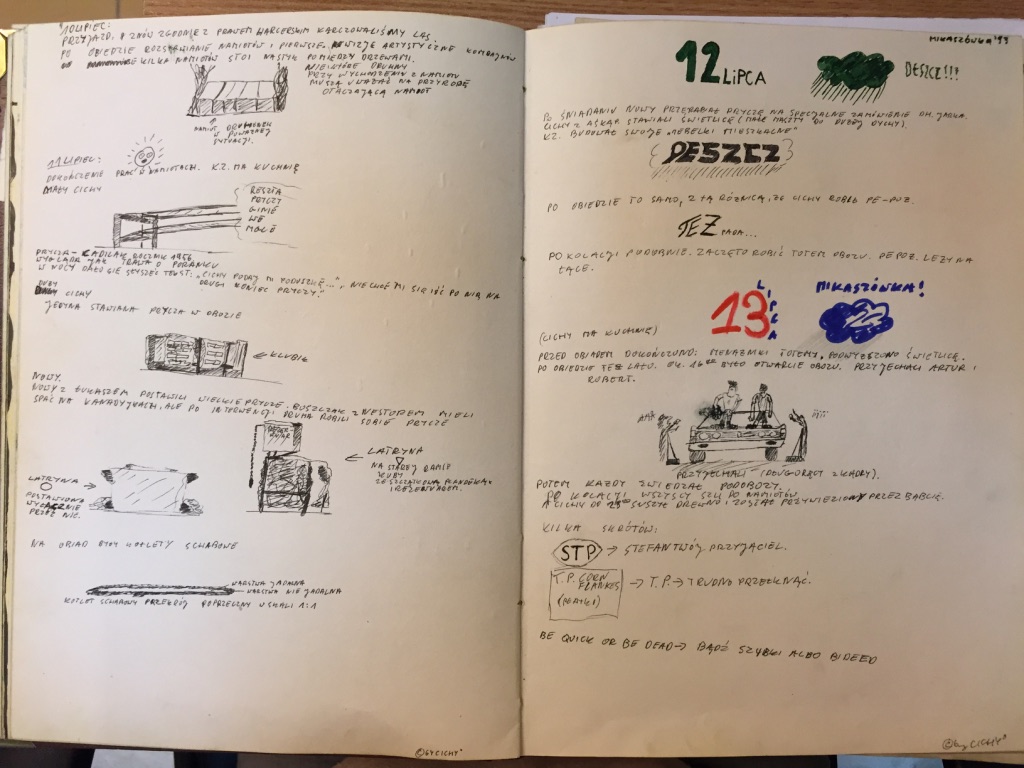 10 LIPIEC:
PRZYJAZD, I ZNÓW ZGODNIE Z PRAWEM HARCERSKIM KARCZOWALIŚMY LAS.
PO OBIEDZIE ROZSTAWIANIE NAMIOTÓW I PIERWSZE WIZJE ARTYSTYCZNE
KILKA NAMIOTÓW STOI NASTYK POMIĘDZY DRZEWAMI.
NIEKTÓRE DRUHNY
PRZY WYCHODZENIU Z NAMIOTU
MUSZĄ UWAŻAĆ NA PRZYRODĘ
OTACZAJĄCĄ NAMIOT
NAMIOT
W POWAŻNEJ
SYTUACJI.
11 LIPIEC:
DOKOŃCZENIE PRAC W NAMIOTACH. K.Z. MA KUCHNIĘ
MAŁY CICHY
RESZTA
PRYCZY
GINIE
WE
MGLE
PRYCZA - CADILAK ROCZNIK 1956
WYGLĄDA JAK TRAWA O PORANKU
W NOCY DAŁO SIĘ SŁYSZEĆ TEKST: "CICHY PODAJ MI PODUSZKĘ...", NIE CHCE MI SIĘ IŚĆ PO NIĄ NA
DRUGI KONIEC PRYCZY."
DUŻY CICHY
JEDYNA STAWIANA PRYCZA W OBOZIE
KLUBIK
NOWY.
NOWY Z ŁUKASZEM POSTAWILI WIELKIE PRYCZE. BUSZCZAK Z NESTOREM MIELI
SPAĆ NA KANADYJKACH, ALE PO INTERWENCJI DRUHA ROBILI SOBIE PRYCZE
LATRYNA
POSTAWIONO
WYŁĄCZNIE
PRZEZ NIC.
LATRYNA
NA STAREJ RAMIE
ZE SZCZĄTKOWĄ PLANDEKĄ
I REZERWUAREM.
NA OBIAD BYŁY KOTLETY SCHABOWE
WARSTWA JADALNA
WARSTWA NIE JADALNA
KOTLET SCHABOWY PRZEKRÓJ POPRZECZNY W SKALI 1:1
© BY CICHY
MIKASZÓWKA '99
12 LIPCA
DESZCZ!!!
PO ŚNIADANIU NOWY PRZERABIAŁ PRYCZĘ NA SPECJALNE ZAMÓWIENIE DH. JARKA.
CICHY Z ASKAR STAWIALI ŚWIETLICĘ (MAŁE MASZTY DO DUŻEJ DYCHY).
K.Z. BUDOWAŁ SWOJE "MEBELKI MIESZKALNE"
DESZCZ
PO OBIEDZIE TO SAMO, Z TĄ RÓŻNICĄ, ŻE CICHY ROBIŁ PE-POŻ.
TEŻ PADA...
PO KOLACJI PODOBNIE. ZACZĘTO ROBIĆ TOTEM OBOZU. PEPOŻ. LEŻY NA
ŁĄCE.
13 LIPCA
MIKASZÓWKA!
(CICHY MA KUCHNIĘ)
PRZED OBIADEM DOKOŃCZONO: MENAŻNIKI TOTEMY, PODWYŻSZONO ŚWIETLICĘ.
PO OBIEDZIE TEŻ LAŁO. OK. 16 BYŁO OTWARCIE OBOZU. PRZYJECHALI ARTUR I
ROBERT.
AAA
PRZYJECHALI (DŁUGORĘCY Z KADRY).
POTEM KAŻDY ZWIEDZAŁ PODOBOZY.
PO KOLACJI WSZYSCY SZLI DO NAMIOTÓW
A CICHY DO 23 SUSZYŁ DREWNO I ZOSTAŁ PRZYWIEZIONY PRZEZ BABCIĘ.
KILKA SKRÓTÓW:
STP → STEFAN TWÓJ PRZYJACIEL.
T.P. CORN
FLANKES
(PŁATKI)
→ T.P. → TRUDNO PRZEŁKNĄĆ.
BE QUICK OR BE DEAD → BĄDŹ SZYBKI ALBO BIDEED
© by CICHY